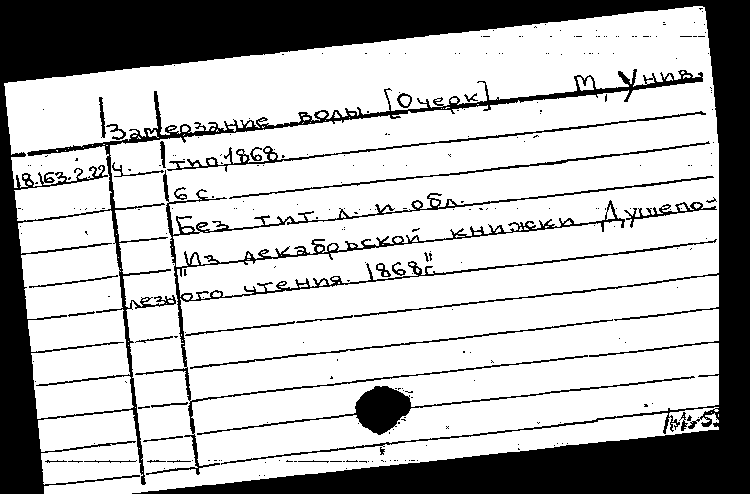 Замерзание воды. [Очерк]. М, Унив.
18.163.2.224. тип, 1868.
6 с.
Без тит. л. и обл.
"Из декабрьской книжки Душепо-
лезного чтения. 1868 г."